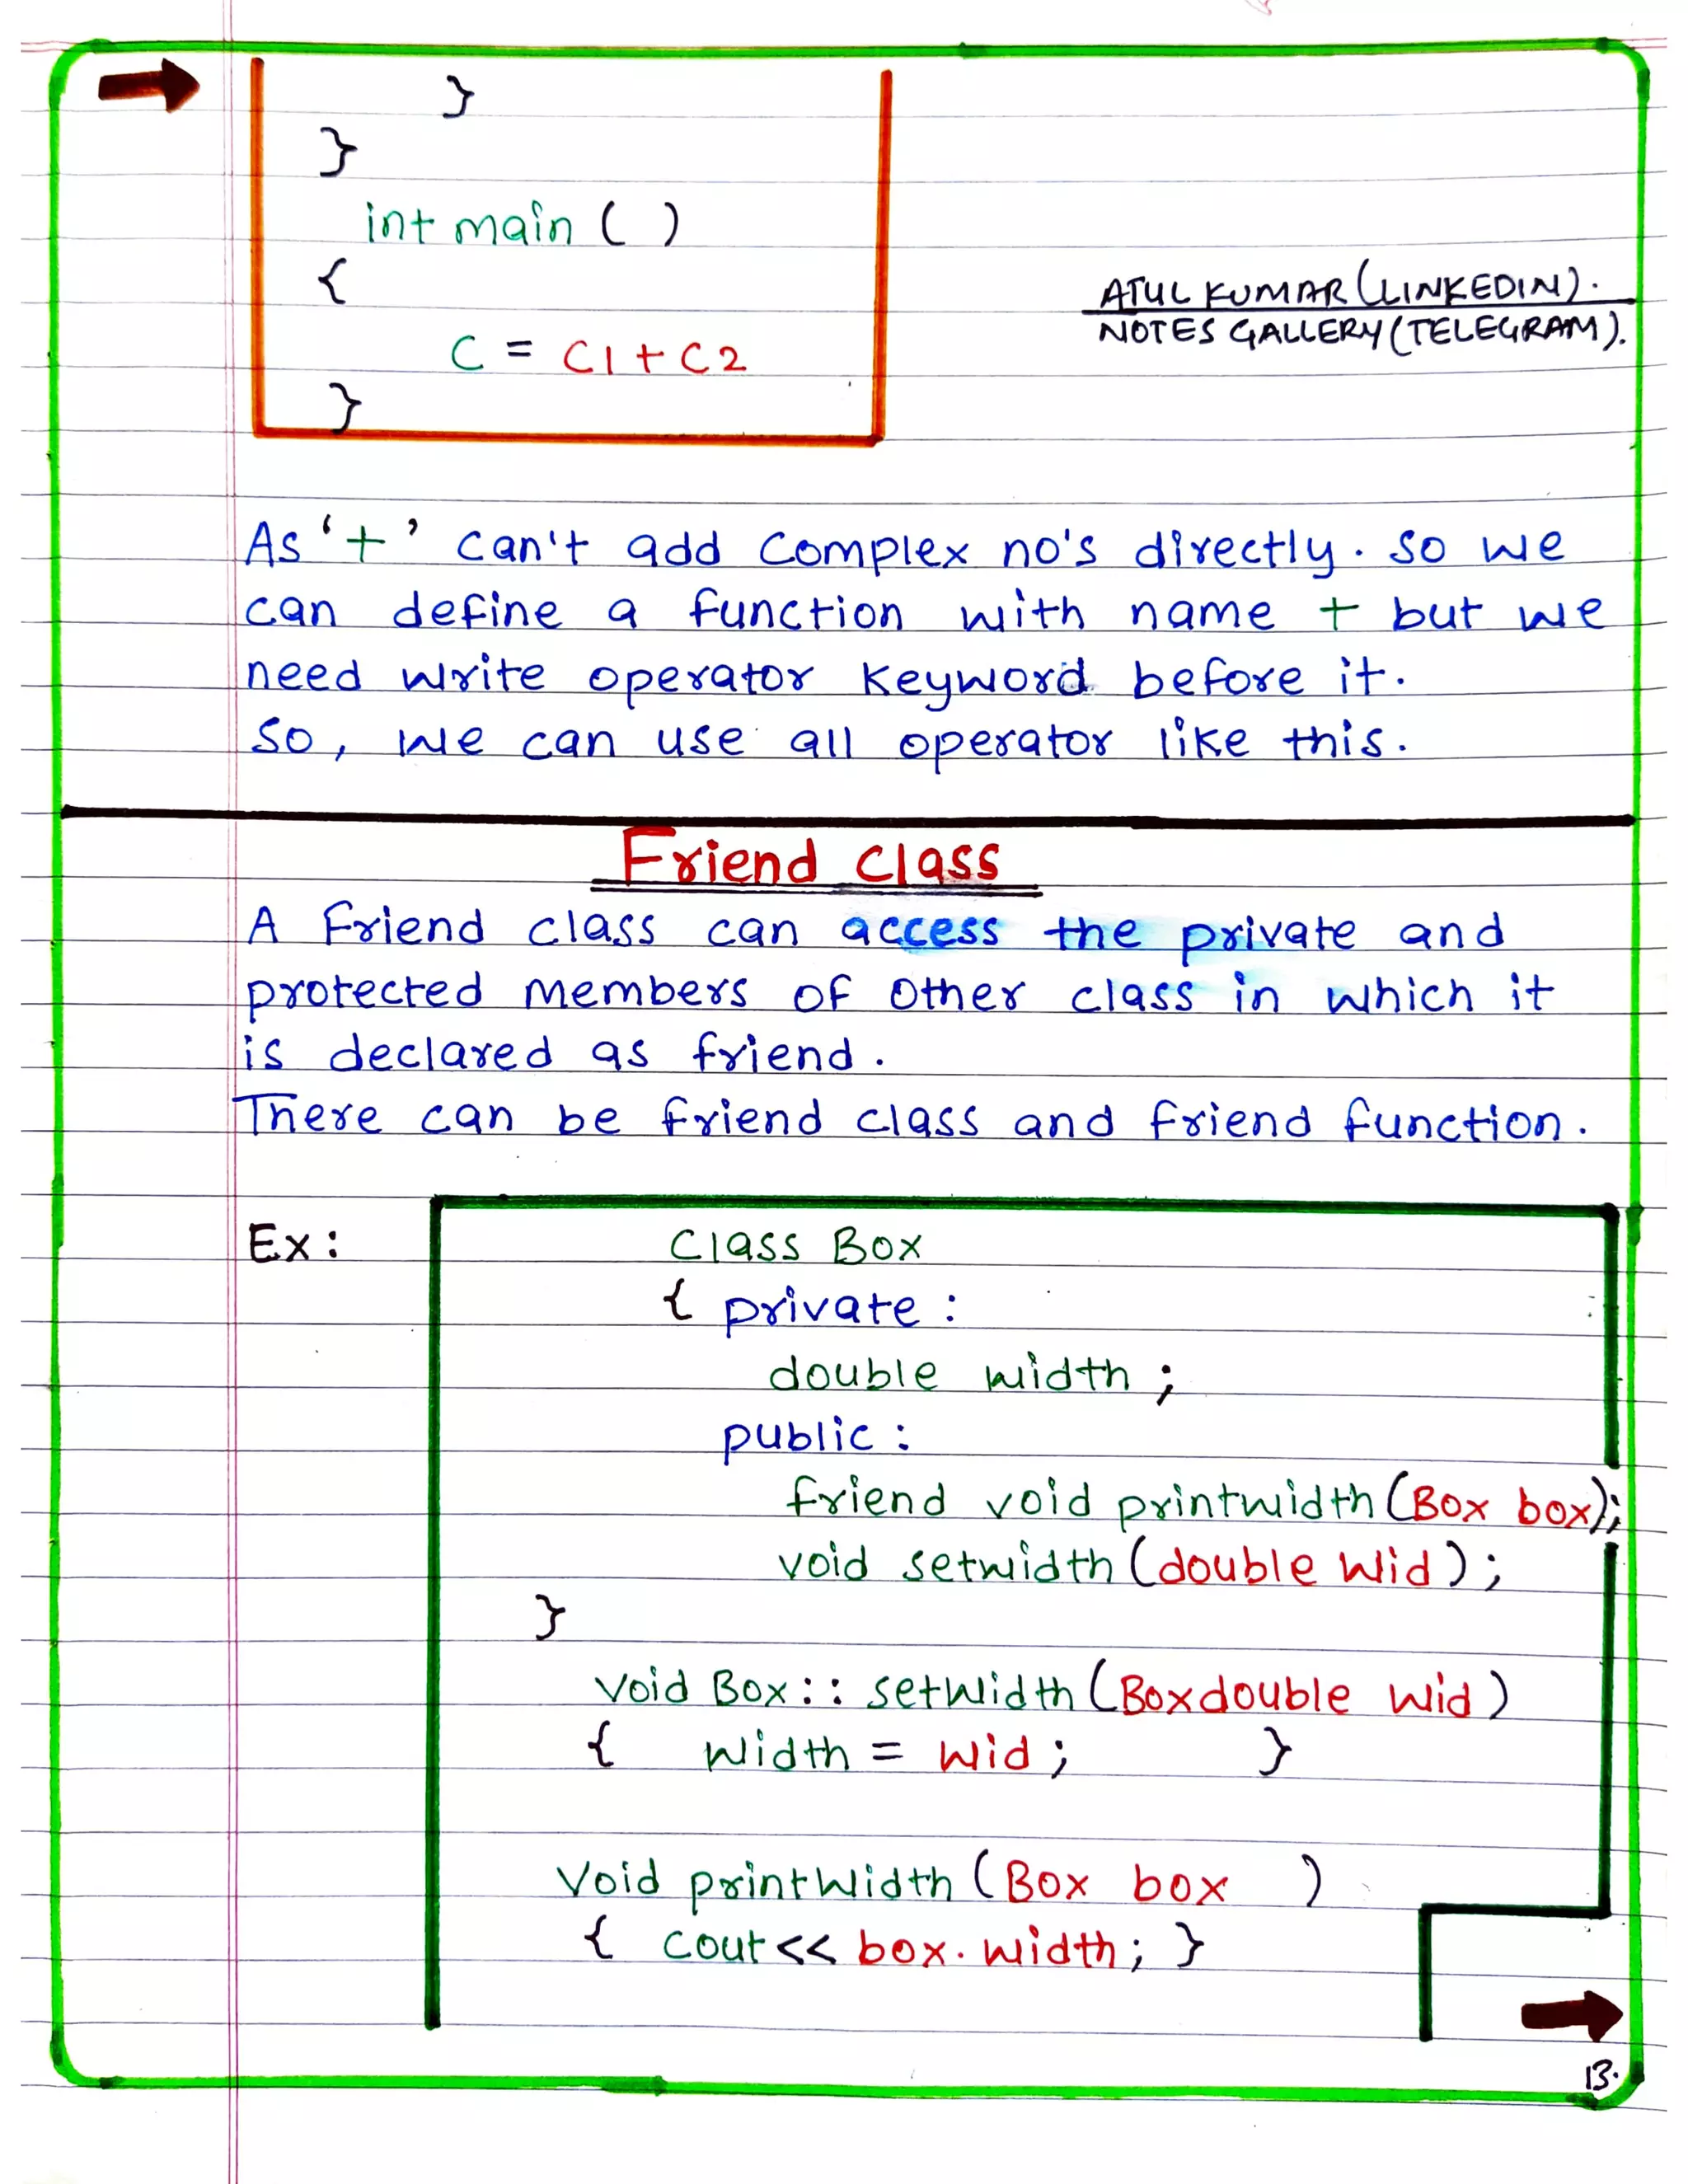 }
}
int main ( )
{
ATUL KUMAR (LINKEDIN).
NOTES GALLERY (TELEGRAM).
C = C1 + C2
}
As '+' can't add complex no's directly. so we
can define a function with name + but we
need write operator keyword before it.
So, we can use all operator like this.
Friend class
A Friend class can access the private and
protected members of other class in which it
is declared as friend.
There can be friend class and friend function.
Ex: Class Box
{ private :
double width ;
public :
friend void printwidth (Box box);
void setwidth (double wid) ;
}
Void Box :: setwidth (Boxdouble wid)
{ width = wid ; }
Void printwidth (Box box )
{ cout << box. width ; }
13.